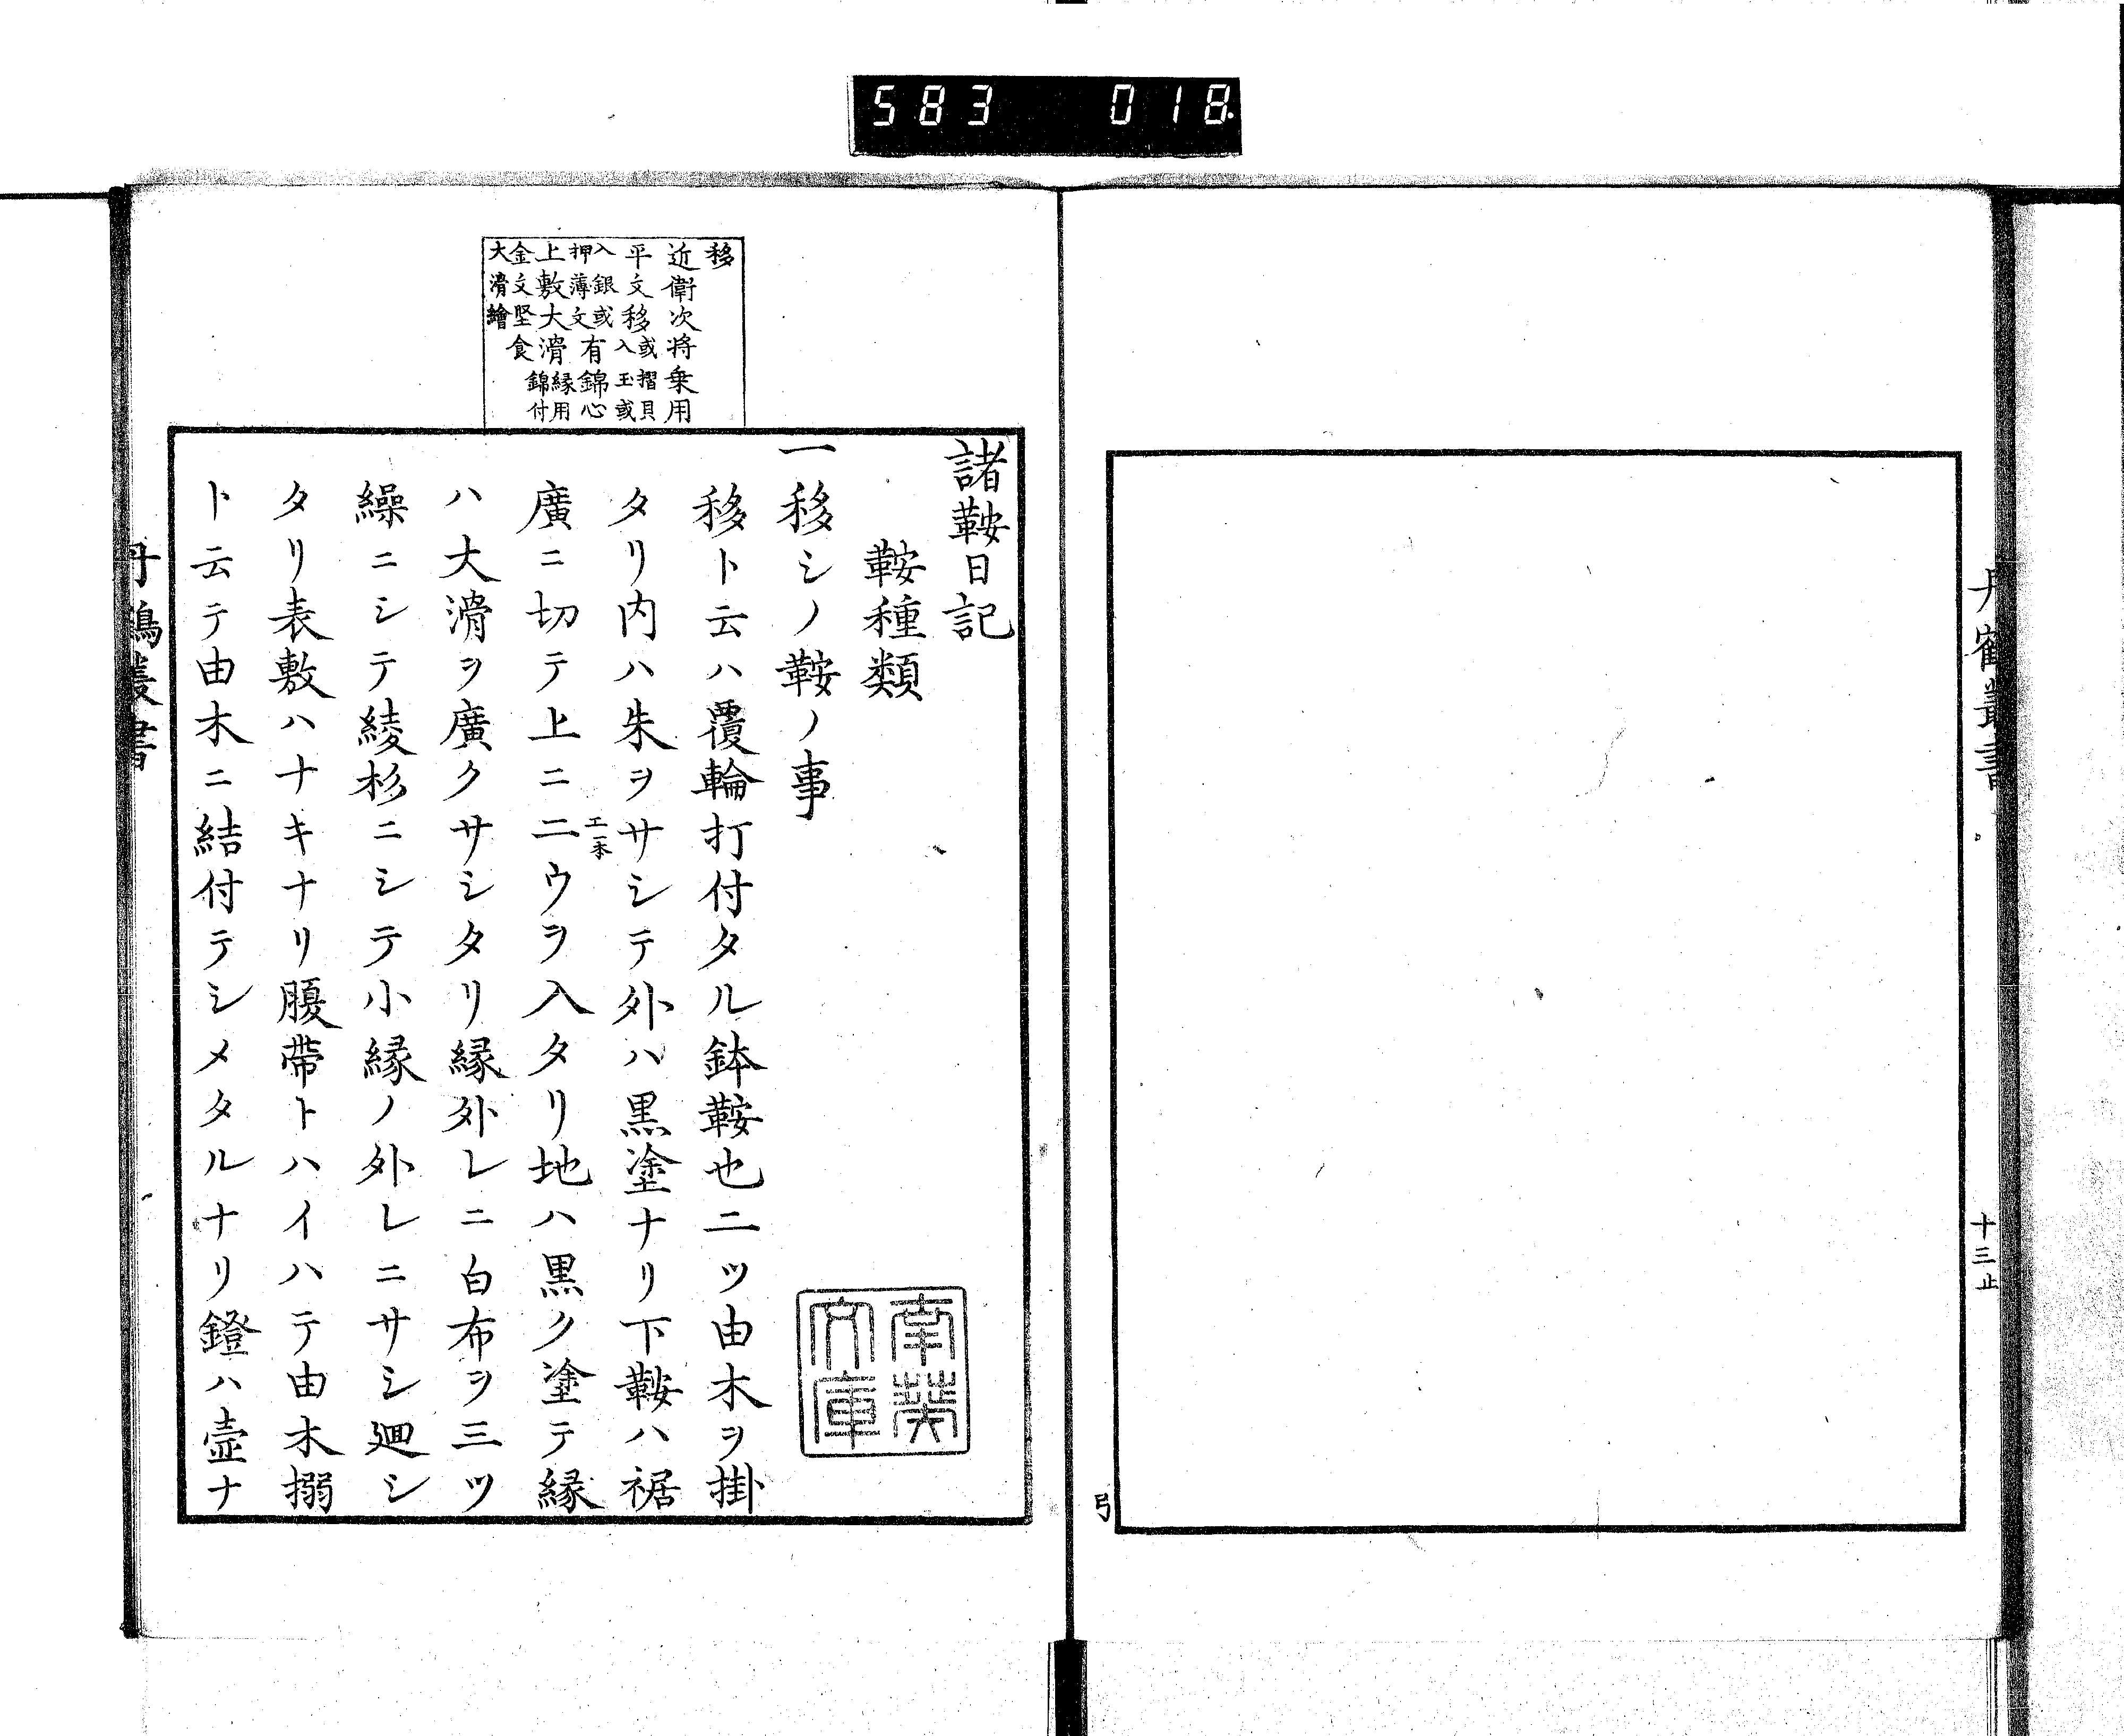 583 018
丹鶴叢書
十三止
弓
移
近衛次将乗用
平文移或摺貝入玉或
入銀或押薄文有錦心
上敷大滑縁用錦付
金文堅食
大滑繪
諸鞍日記
鞍種類
一移シノ鞍ノ事
移ト云ハ覆輪打付タル鉢鞍也二ツ由木ヲ掛
タリ内ハ朱ヲサシテ外ハ黒塗ナリ下鞍ハ裾
廣ニ切テ上ニ二ウヲ入タリ地ハ黒ク塗テ縁
エ一本
ハ大滑ヲ廣クサシタリ縁外レニ白布ヲ三ツ
繰ニシテ綾杉ニシテ小縁ノ外レニサシ廻シ
タリ表敷ハナキナリ腹帶トハイハテ由木搦
ト云テ由木ニ結付テシメタルナリ鐙ハ壺ナ
南葵
文庫
丹鶴叢書